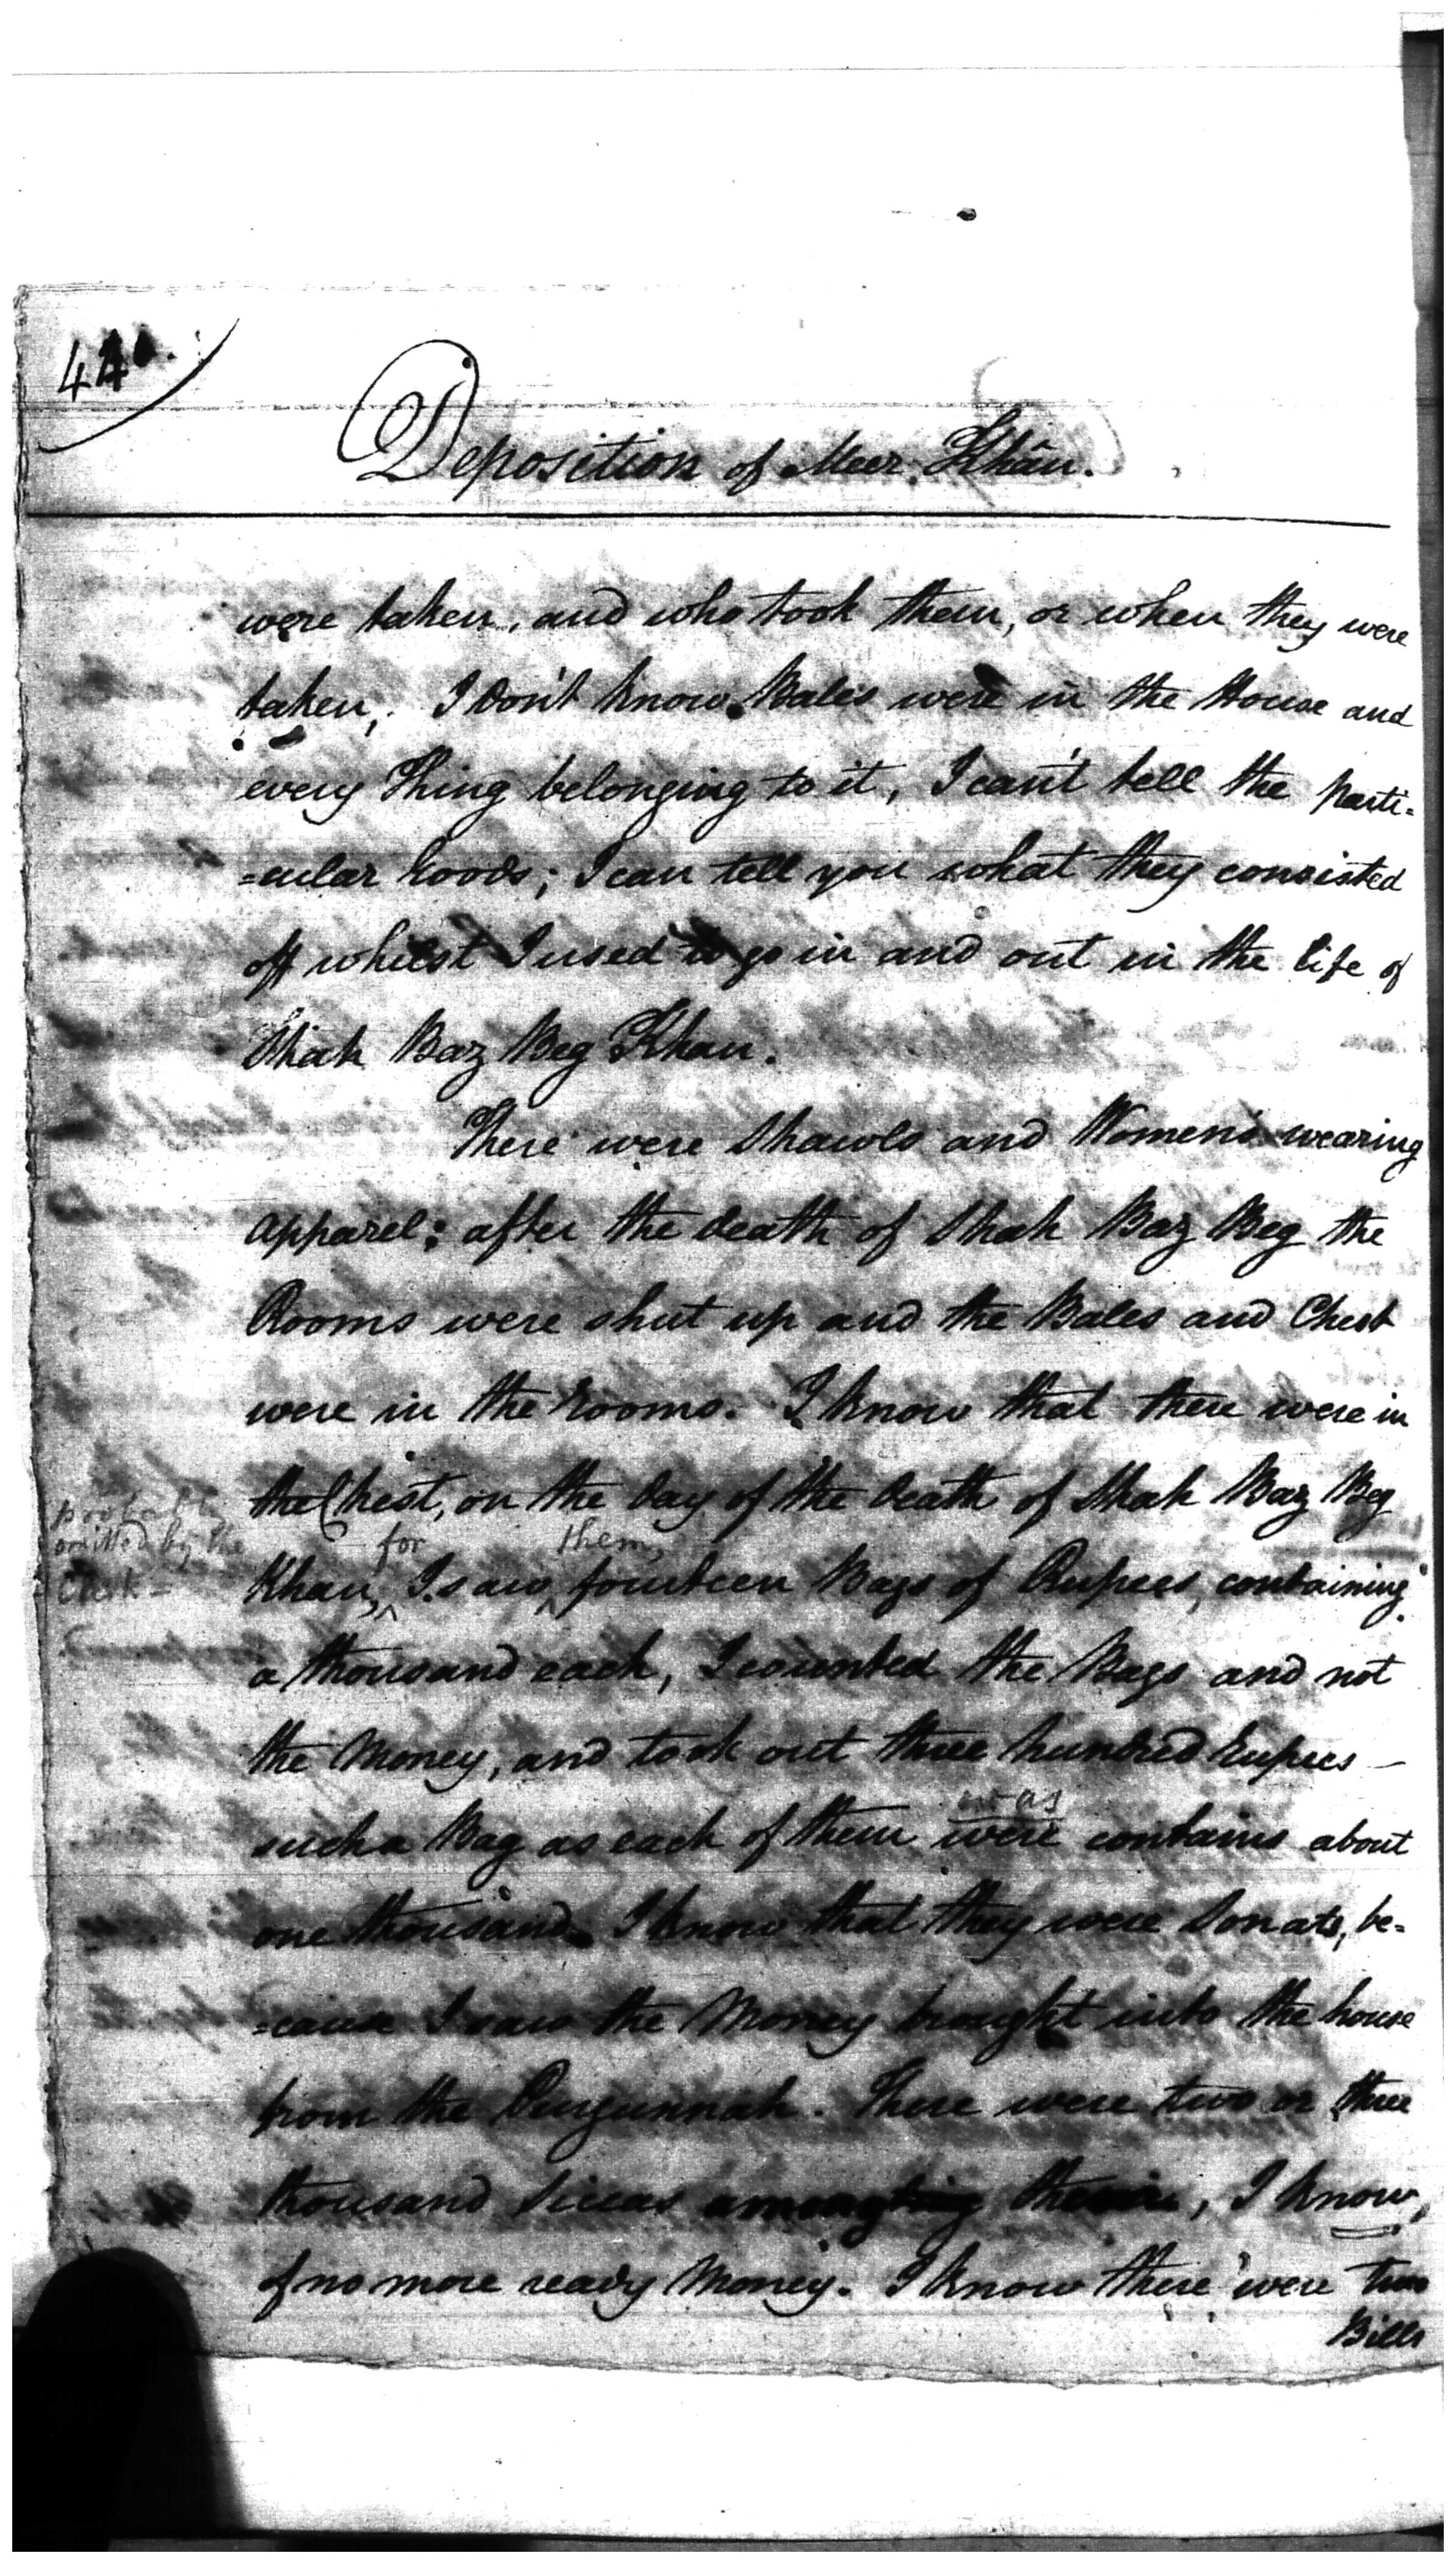 44
Deposition of Meer Khân.
were taken, and who took them, or when they were
taken, I don't know. Bales were in the House and
every Thing belonging to it, I can't tell the parti=
=cular Goods; I can tell you what they consisted
off whilst I used to go in and out in the life of
Shah Baz Beg Khan.
There were Shawls and Women's wearing
apparel: after the death of Shah Baz Beg the
Rooms were shut up and the Bales and Chest
were in the Rooms. I know that there were in
the Chest, on the day of the death of Shah Baz Beg
probably
omitted by the
Clerk -
for them,
Khan, I saw fourteen Bags of Rupees, containing
a thousand each, I counted the Bags and not
the Money, and took out three hundred Rupees -
was
such a Bag as each of them were contains about
one thousand. I know that they were Sonats, be=
=cause I saw the Money brought into the house
from the Purgunnah. There were two or three
thousand Siccas among, I know,
of no more ready Money. I know there were two
Bills